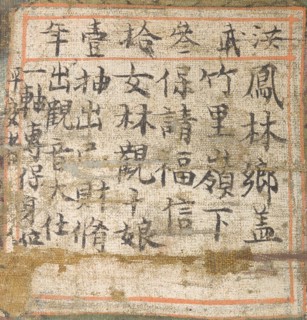 洪武叁拾壹年
鳳林鄉盖
竹里嶺下
保請福信
女林觀十娘
抽出財脩
出觀音大仕
一軸專保身位
平安吉